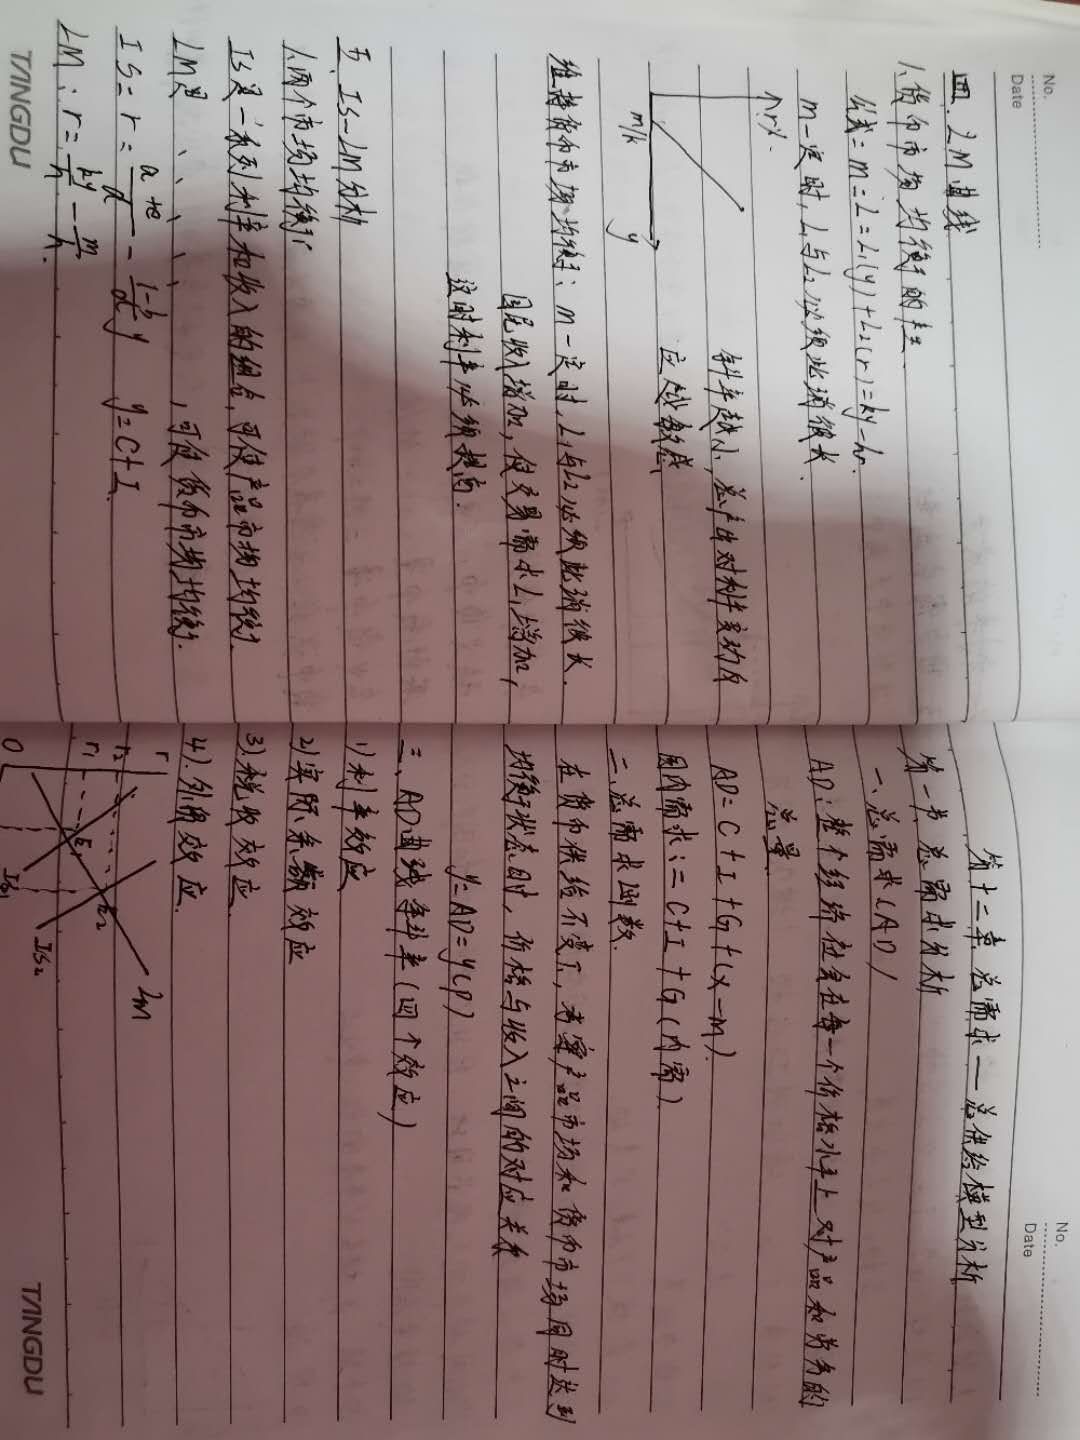 No.
Date
四、LM曲线
1、货币市场均衡的产生
公式=m=L=L₁(y)+L₂(r)=ky-hr.
m一定时,L₁与L₂必须此消彼长.
↑r%.
斜率越小,总产出对利率变动反
应越敏感
m/k
y
维持货币市场均衡:m一定时,L₁与L₂必须此消彼长.
因是收入增加,使交易需求L₁增加,
这时利率必须提高.
五、IS-LM分析
1、两个市场均衡
IS是一系列利率和收入的组合,可使产品市场均衡.
LM是、、、、、,可使货币市场均衡.
IS=r=(a+e)/d-(1-b)/d y y=C+I.
LM:r=ky/h-m/h.
TANGDU
No.
Date
第十二章 总需求—总供给模型分析
第一节 总需求分析
一、总需求(AD)
AD:整个经济社会在每一个价格水平上对产品和劳务的
总量
AD=C+I+G+(X-M).
国内需求:=C+I+G(内需)
二、总需求函数.
在货币供给不变下,考察产品市场和货币市场同时达到
均衡状态时,价格与收入之间的对应关系
y=AD=y(P)
三、AD曲线斜率(四个效应)
1)利率效应
2)实际余额效应
3)税收效应
4).外部效应.
r
r₂
r₁
O
E₁
E₂
IS₁
IS₂
LM
TANGDU